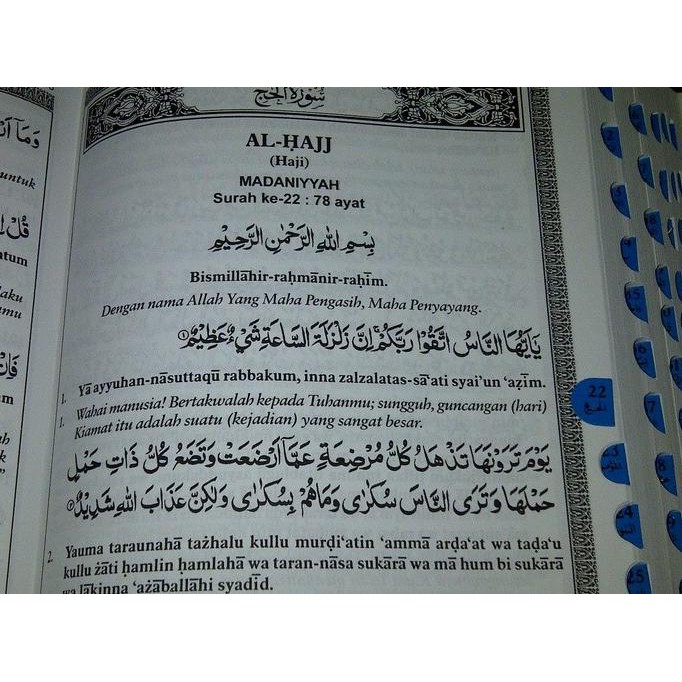 سورة الحج
AL-ḤAJJ
(Haji)
MADANIYYAH
Surah ke-22 : 78 ayat
بِسْمِ اللهِ الرَّحْمٰنِ الرَّحِيْمِ
Bismillāhir-raḥmānir-raḥīm.
Dengan nama Allah Yang Maha Pengasih, Maha Penyayang.
يٰٓاَيُّهَا النَّاسُ اتَّقُوْا رَبَّكُمْۚ اِنَّ زَلْزَلَةَ السَّاعَةِ شَيْءٌ عَظِيْمٌ ١
1. Yā ayyuhan-nāsuttaqū rabbakum, inna zalzalatas-sā‘ati syai’un ‘aẓīm.
1. Wahai manusia! Bertakwalah kepada Tuhanmu; sungguh, guncangan (hari)
Kiamat itu adalah suatu (kejadian) yang sangat besar.
يَوْمَ تَرَوْنَهَا تَذْهَلُ كُلُّ مُرْضِعَةٍ عَمَّآ اَرْضَعَتْ وَتَضَعُ كُلُّ ذَاتِ حَمْلٍ
حَمْلَهَا وَتَرَى النَّاسَ سُكٰرٰى وَمَا هُمْ بِسُكٰرٰى وَلٰكِنَّ عَذَابَ اللهِ شَدِيْدٌ ٢
2. Yauma taraunahā tażhalu kullu murḍi‘atin ‘ammā arḍa‘at wa taḍa‘u
kullu żāti ḥamlin ḥamlahā wa taran-nāsa sukārā wa mā hum bi sukārā
wa lākinna ‘ażāballāhi syadīd.
untuk
22
الحج
24
25